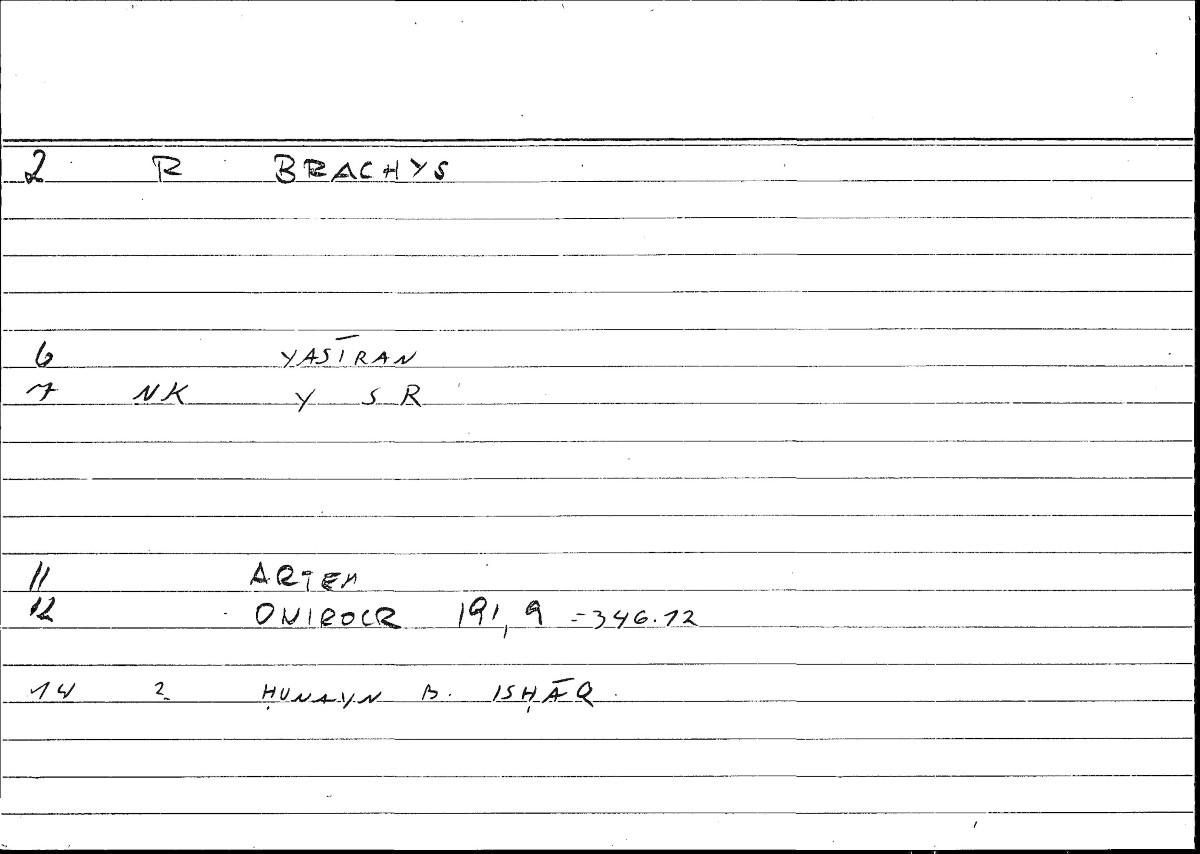 2 R BRACHYS
6 YASĪRAN
7 NK Y S R
11 ARTEM
12 ONIROCR 191,9 =346.12
14 2 ḤUNAYN B. ISḤĀQ.